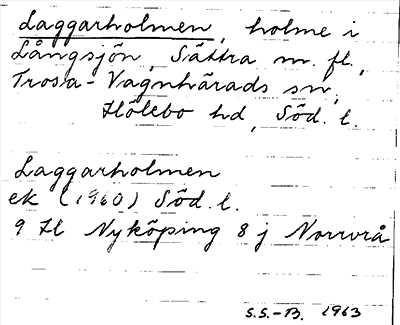 Laggarholmen, holme i
Långsjön, Sättra m. fl.,
Trosa-Vagnhärads sn,
Hölebo hd, Söd. l.
Laggarholmen
ek (1960) Söd. l.
9 H Nyköping 8 j Norrvrå
S.S.-B. 1963